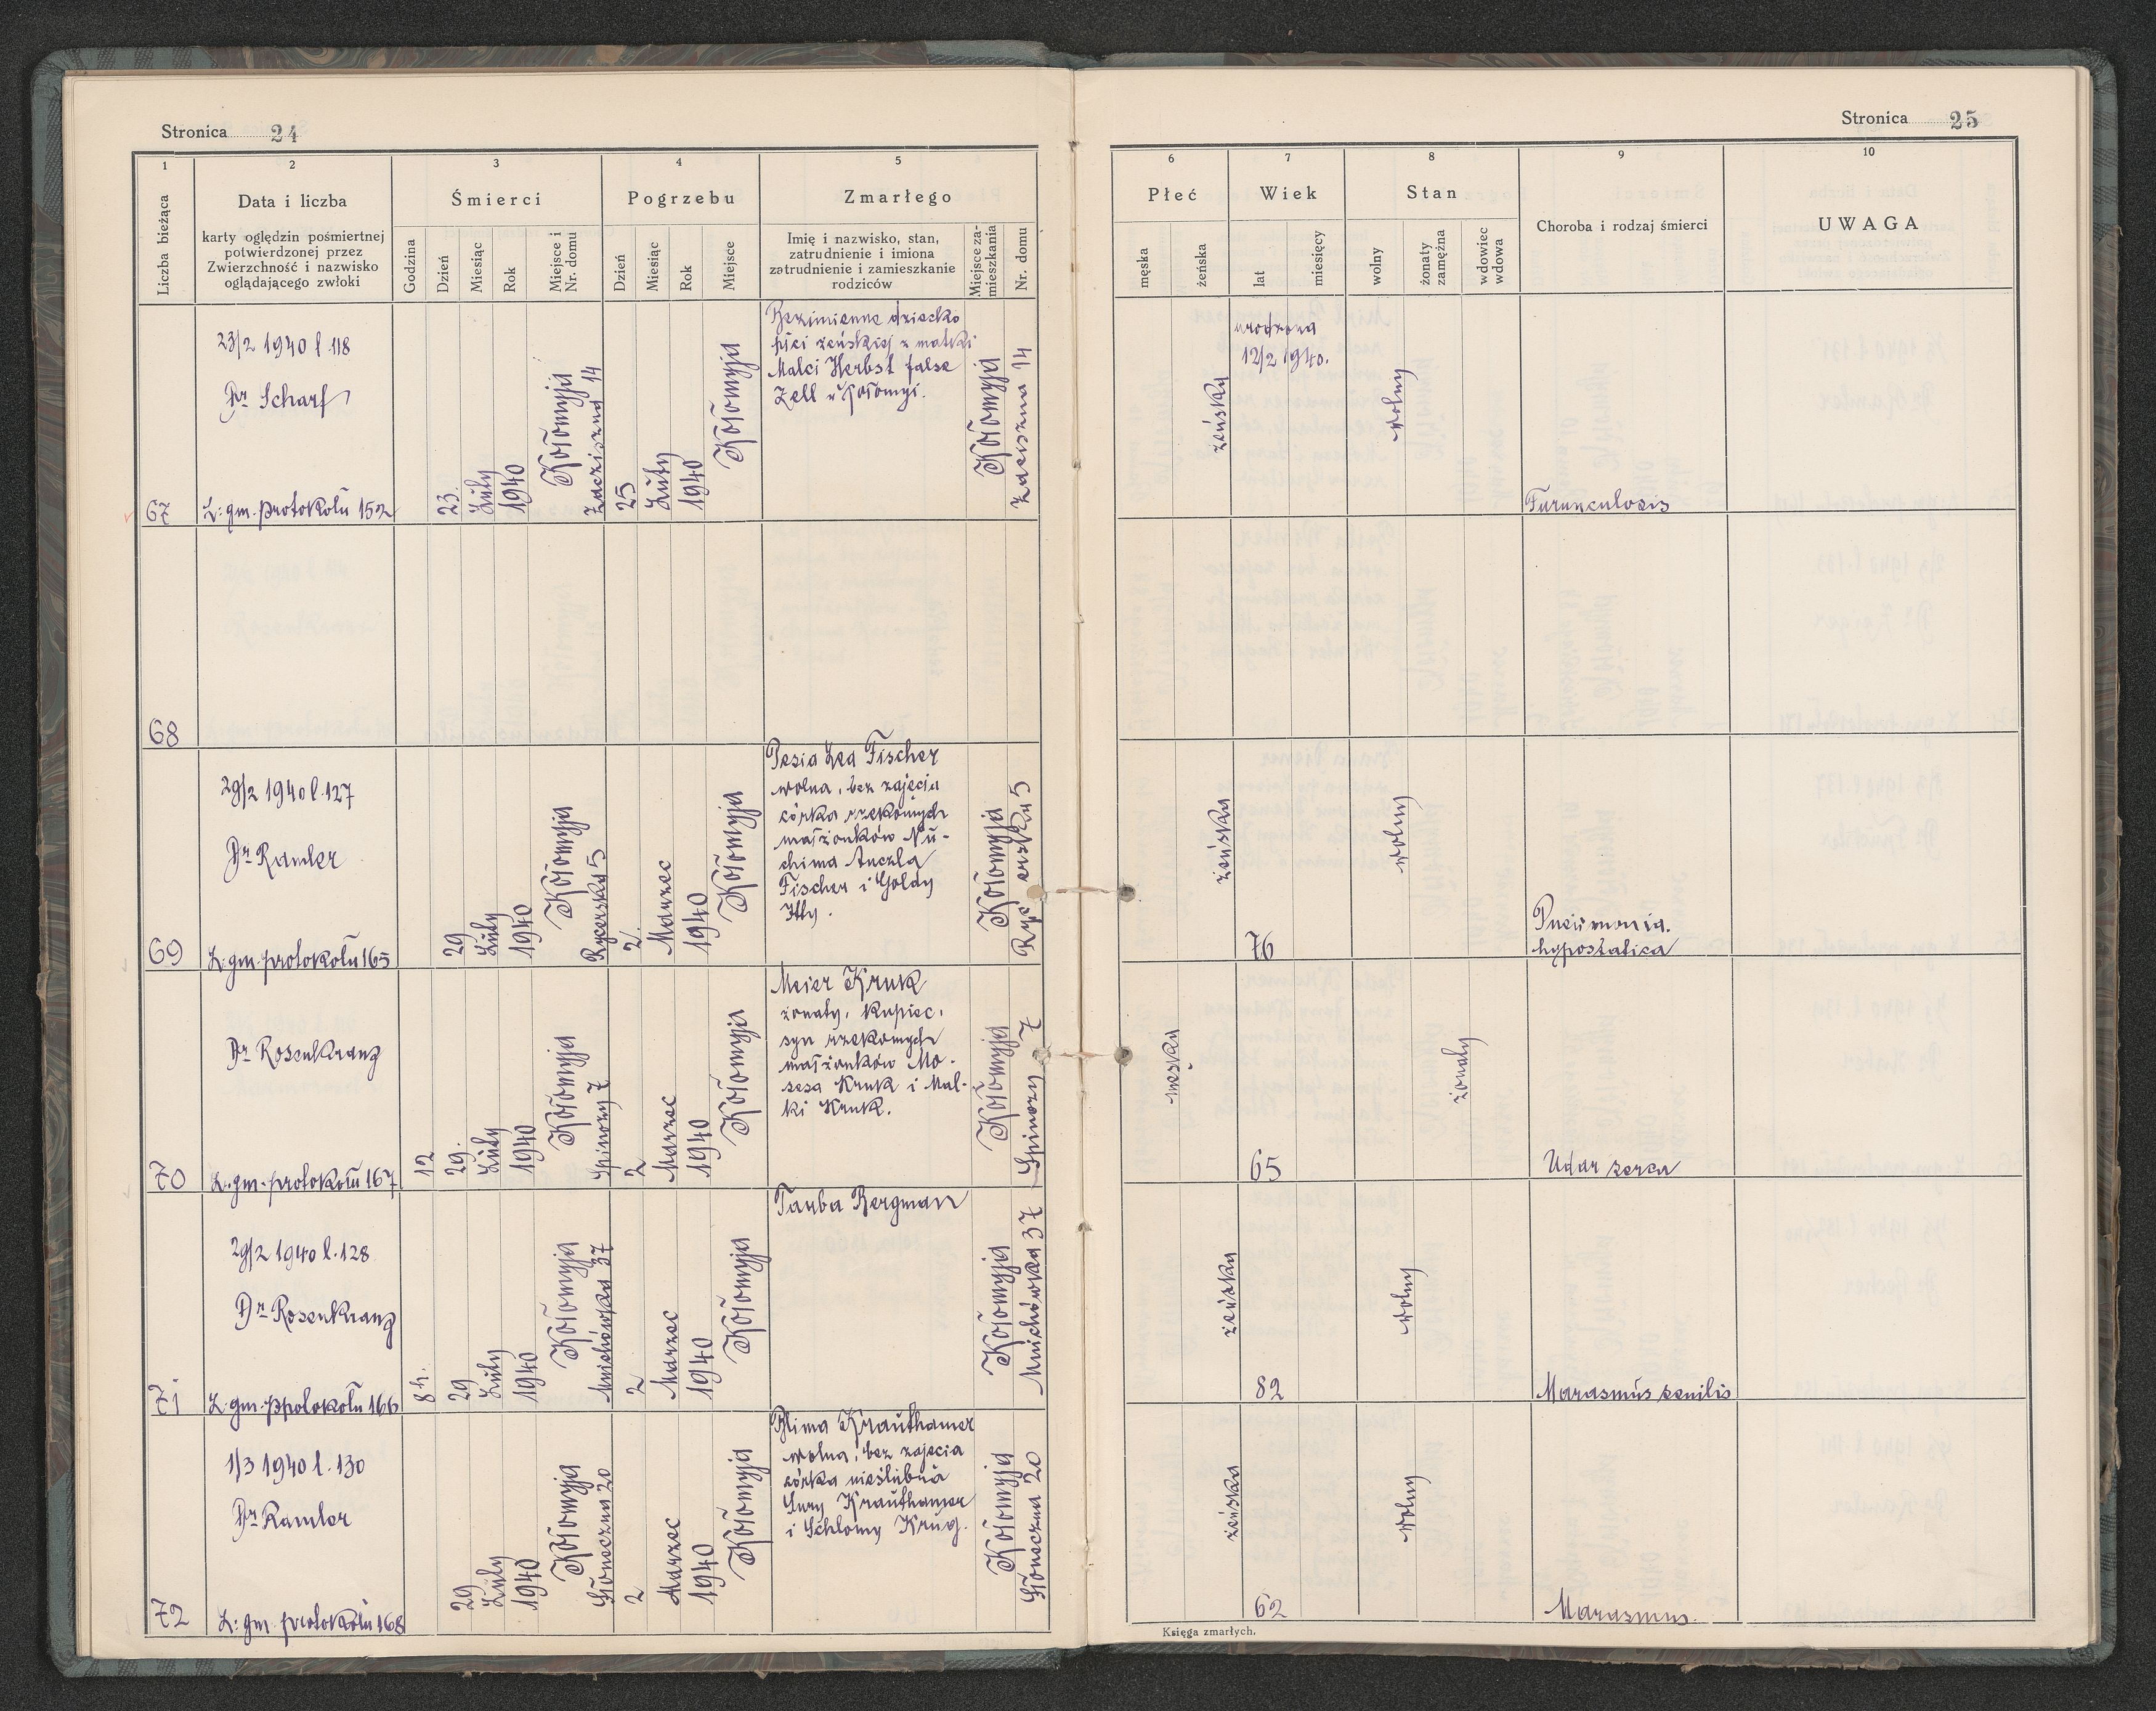 Stronica 24
1
2
3
4
5
Liczba bieżąca
Data i liczba
karty oględzin pośmiertnej
potwierdzonej przez
Zwierzchność i nazwisko
oglądającego zwłoki
Śmierci
Godzina
Dzień
Miesiąc
Rok
Miejsce i
Nr. domu
Pogrzebu
Dzień
Miesiąc
Rok
Miejsce
Zmarłego
Imię i nazwisko, stan,
zatrudnienie i imiona
zatrudnienie i zamieszkanie
rodziców
Miejsce za-
mieszkania
Nr. domu
67
23/2 1940 l 118
Dr Scharf
L: gm. protokołu 152
23.
Luty
1940
Kołomyja
Zaciszna 14
25
Luty
1940
Kołomyja
Bezimienne dziecko
płci żeńskiej z matki
Malci Herbst false
Zell w Kołomyi.
Kołomyja
Zaciszna 14
68
69
29/2 1940 l. 127
Dr Ramler
L: gm. protokołu 165
29
Luty
1940
Kołomyja
Rycerska 5
2.
Marzec
1940
Kołomyja
Pesia Lea Fischer
wolna, bez zajęcia
córka rzekomych
małżonków Nu-
chima Anczla
Fischer i Goldy
Itty.
Kołomyja
Rycerska 5
70
Dr Rosenkranz
L. gm. protokołu 167
12
29.
Luty
1940
Kołomyja
Spinozy 7
2
Marzec
1940
Kołomyja
Meier Kruk
żonaty, kupiec,
syn rzekomych
małżonków Mo-
sesa Kruk i Mal-
ki Kruk.
Kołomyja
Spinozy 7
71
29/2 1940 l. 128
Dr Rosenkranz
L: gm. protokołu 166
8 h.
29
Luty
1940
Kołomyja
Mnichówka 37
2
Marzec
1940
Kołomyja
Tauba Bergman
Kołomyja
Mnichówka 37
72
1/3 1940 l. 130
Dr Ramler
L: gm. protokołu 168
29
Luty
1940
Kołomyja
Słoneczna 20
2
Marzec
1940
Kołomyja
Blima Krauthamer
wolna, bez zajęcia
córka nieślubna
Sury Krauthamer
i Schlomy Krug.
Kołomyja
Słoneczna 20
Stronica 25
6
7
8
9
10
Płeć
męska
żeńska
Wiek
lat
miesięcy
Stan
wolny
żonaty
zamężna
wdowiec
wdowa
Choroba i rodzaj śmierci
UWAGA
żeńska
urodzona
12/2 1940.
wolny
Furunculosis
żeńska
76
wolny
Pneumonia.
hypostatica
męska
65
żonaty
Udar serca
żeńska
82
wolny
Marasmus senilis
żeńska
62
wolny
Marasmus.
Księga zmarłych.